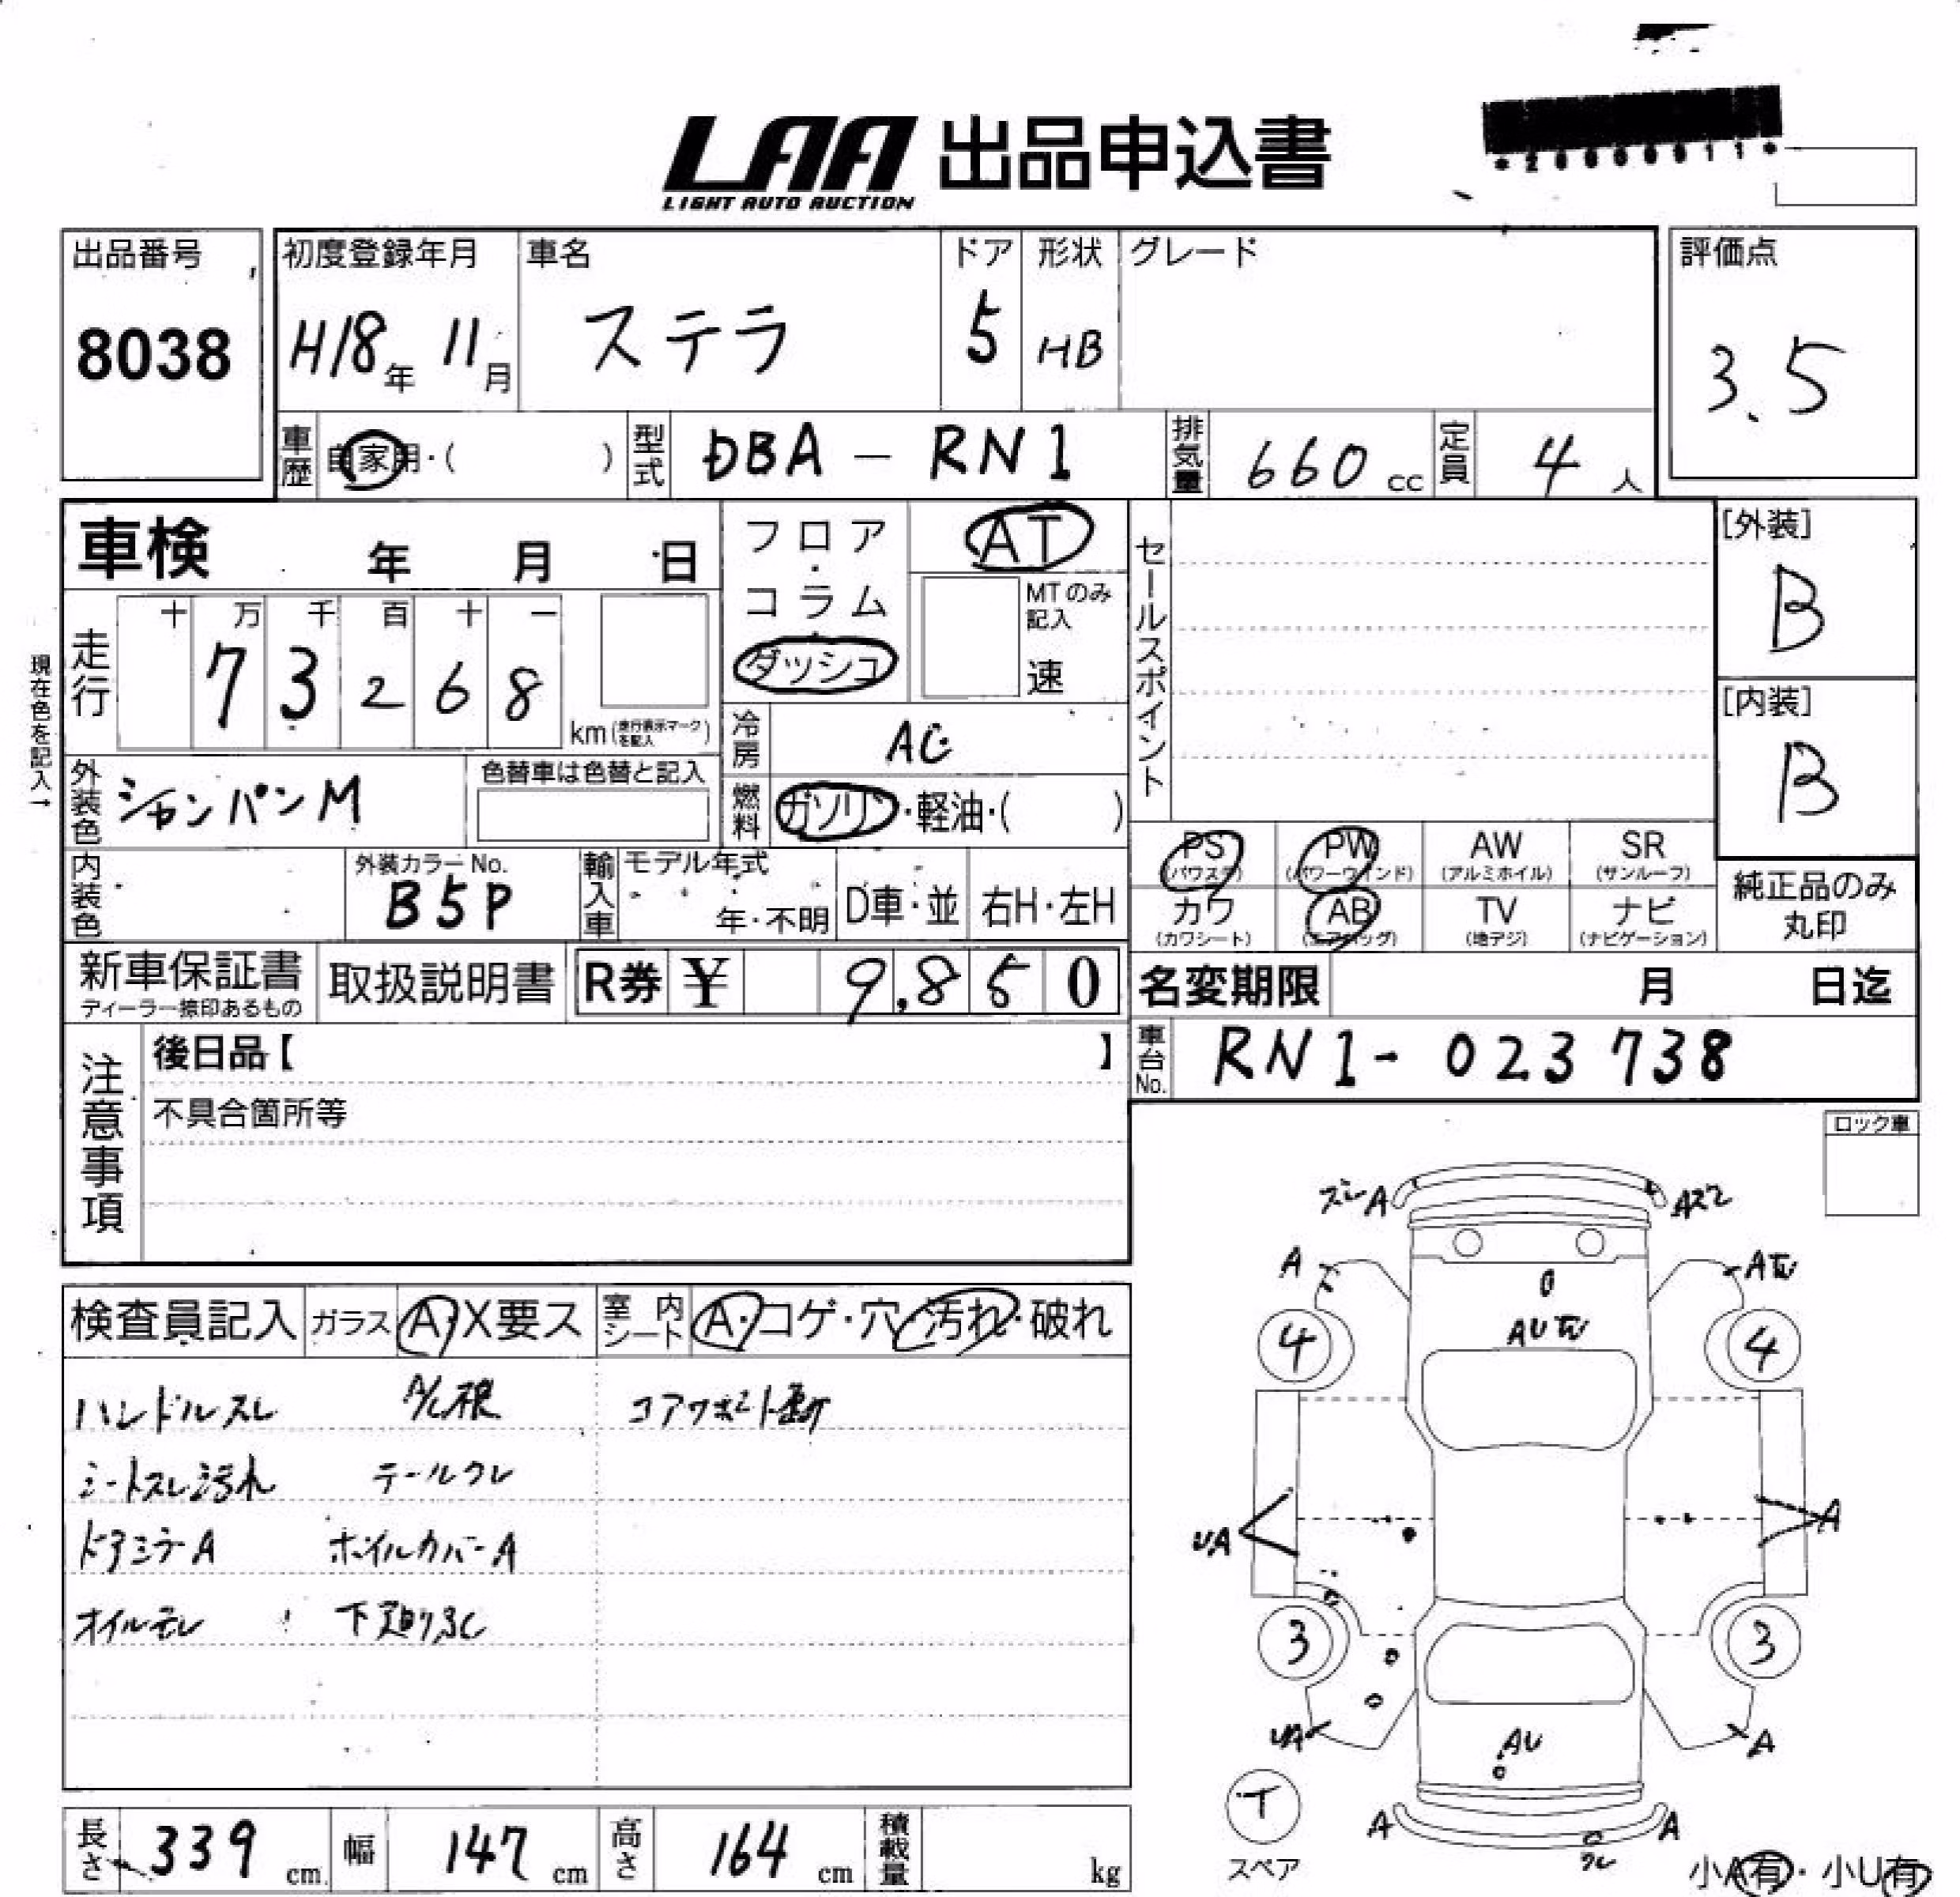 LAA 出品申込書
LIGHT AUTO AUCTION
出品番号 初度登録年月 車名 ドア 形状 グレード 評価点
8038 H18年 11月 ステラ 5 HB 3.5
車歴 自家用・( ) 型式 DBA - RN1 排気量 660 cc 定員 4 人
車検 年 月 日
フロア・コラム・ダッシュ
AT
MTのみ記入 速
セールスポイント
[外装] B
[内装] B
現在色を記入→
走行 十 万 千 百 十 一
7 3 2 6 8
km (走行表示マークを記入)
冷房 AC
外装色 シャンパンM 色替車は色替と記入
燃料 ガソリン・軽油・( )
PS (パワステ) PW (パワーウインド) AW (アルミホイル) SR (サンルーフ)
カワ (カワシート) AB (エアバッグ) TV (地デジ) ナビ (ナビゲーション)
純正品のみ丸印
内装色 外装カラーNo. B5P 輸入車 モデル年式 年・不明 D車・並 右H・左H
新車保証書 ディーラー捺印あるもの 取扱説明書 R券 ¥ 9,850 名変期限 月 日迄
注意事項 後日品【 】 車台No. RN1-023738
不具合箇所等
ロック車
検査員記入 ガラス A・X要ス 室内シート A・コゲ・穴・汚れ・破れ
ハンドルスレ
シートスレ汚れ テールワレ
ドアミラーA ホイルカバーA
オイルモレ
ズレA
A A
AU
4 4
UA A
3 3
UA A
AU
T
スペア
A A
小A有・小U有
長さ 339 cm 幅 147 cm 高さ 164 cm 積載量 kg